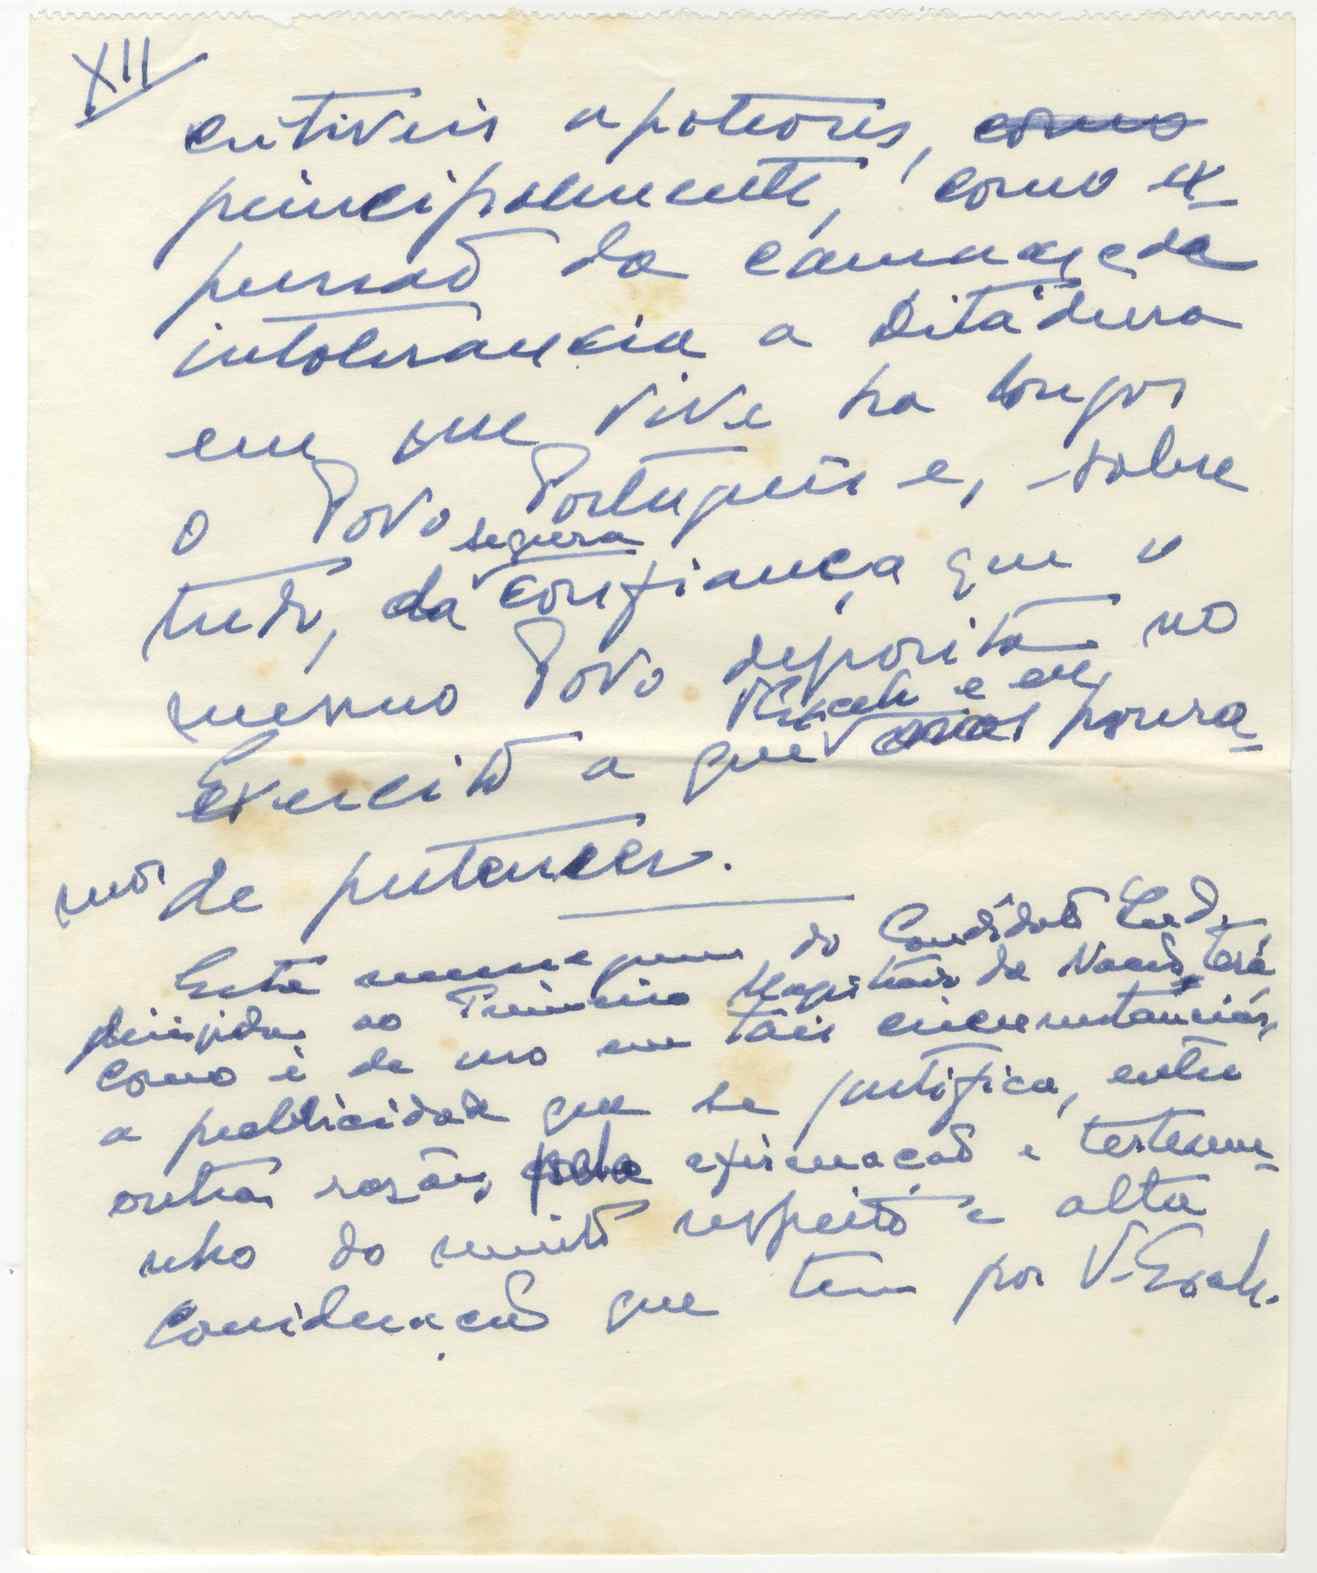 XII
critiveis apoteoses, como
principalmente, como ex-
pressão da cançaço e da
intolerancia a Ditadura
em que vive ha longos
o Povo Português e, sobre
tudo, da segura confiança que o
mesmo Povo deposita no
Exercito a que V. Excelª e eu, honra-
mos de pertencer.
Esta mensagem do Candidato
dirigida ao Primeiro Magistrado da Nação, terá
como é de uso em tais circunstancias,
a publicidade que se justifica, entre
outras razões, pela afirmação e testemu-
nho do muito respeito e alta
consideração que tem por V. Excelª.